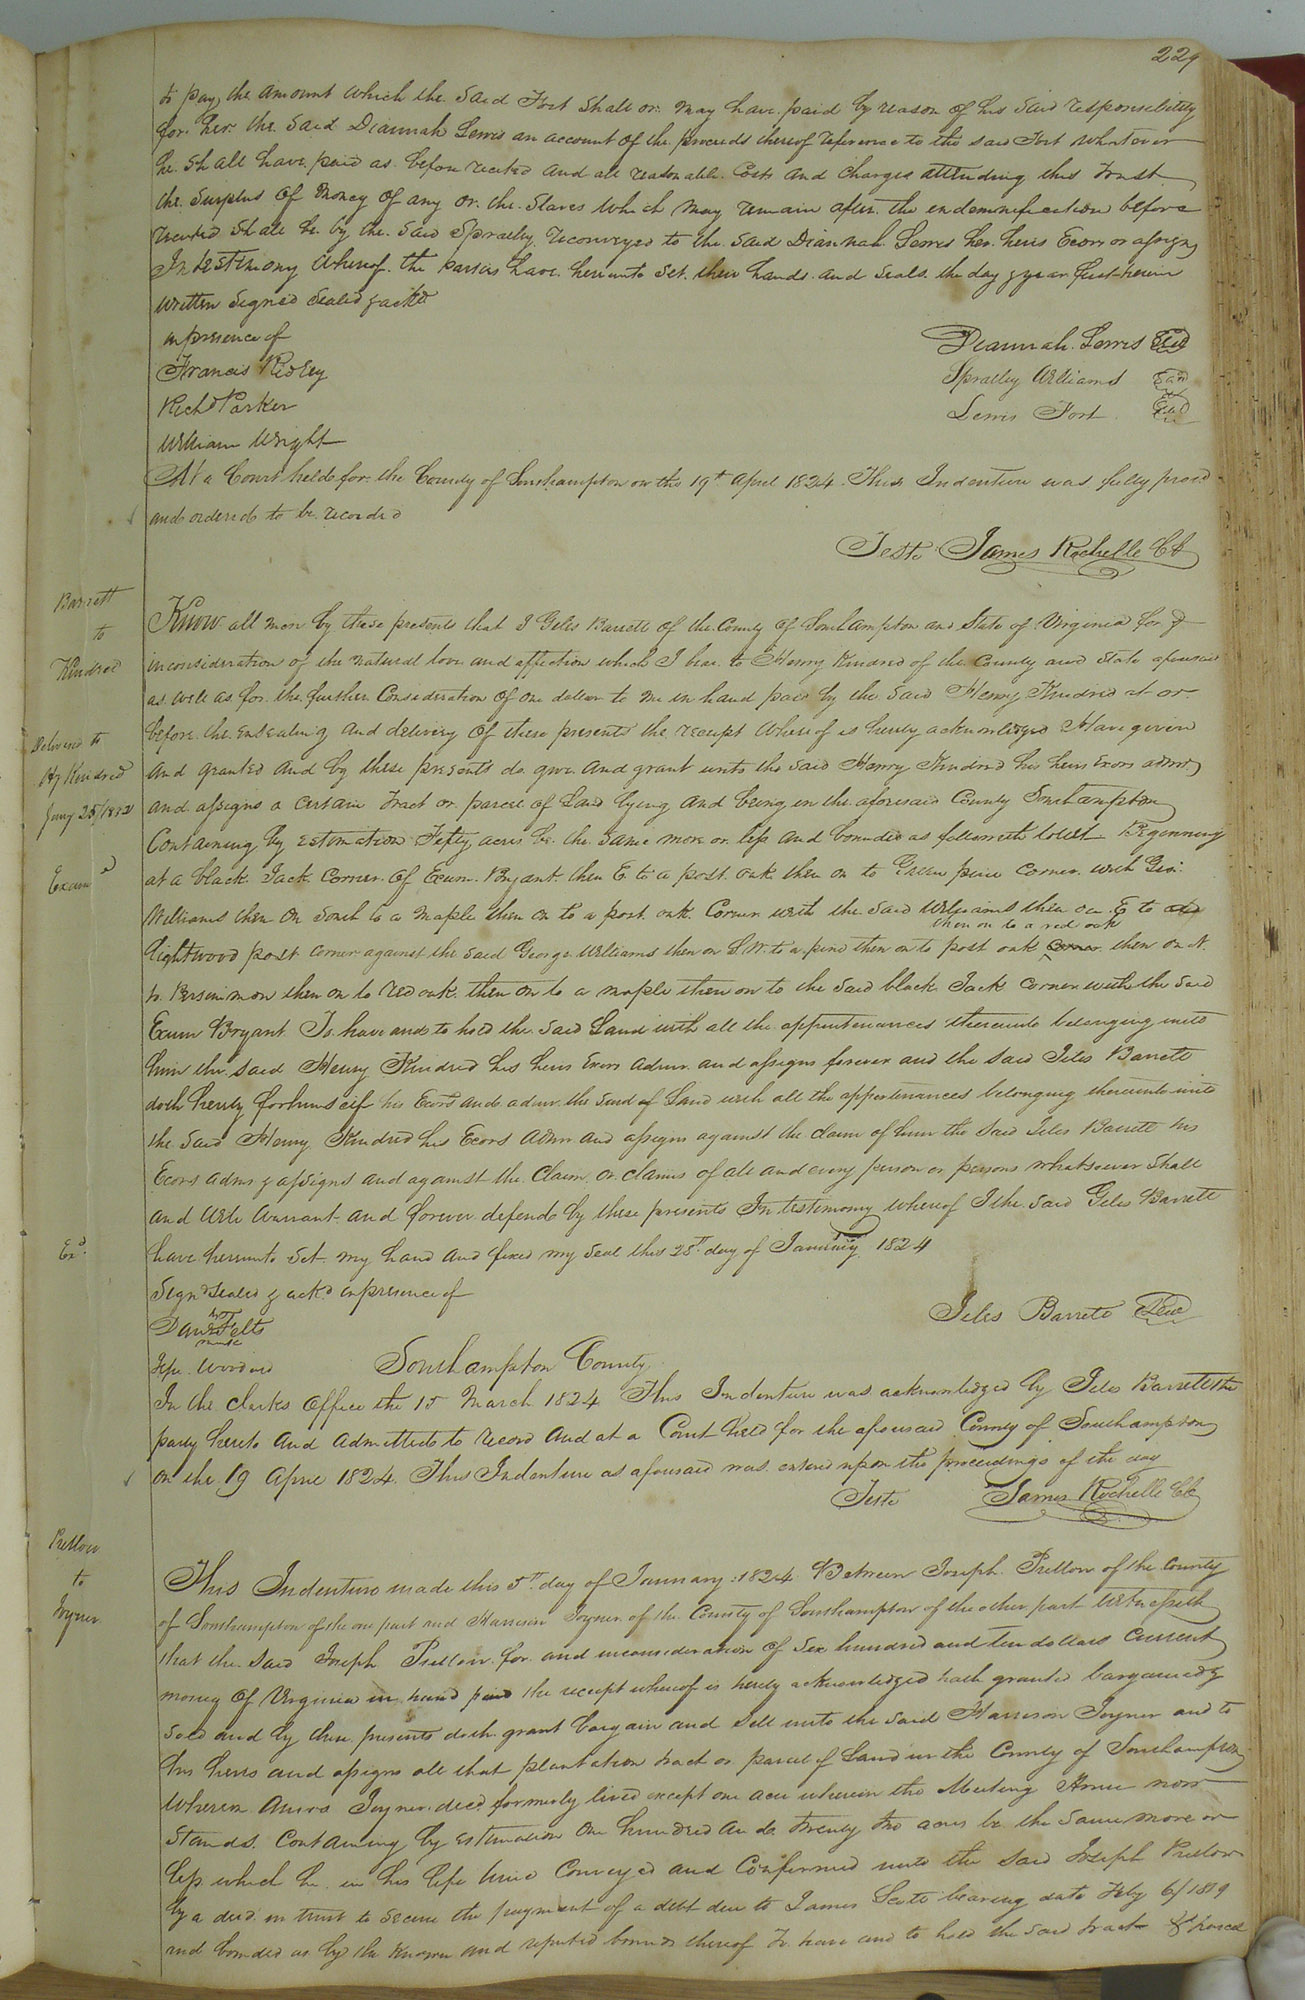 229
to pay the amount which the said Fort shall or may have paid by reason of his said responsibility
for her the said Diannah Lewis an account of the proceeds thereof reference to the said Fort whatever
he shall have paid as before recited and all reasonable Costs and Charges attending this Trust
the surplus of money of any or the Slaves which may remain after the indemnification before
recited shall be by the said Spratley reconveyed to the said Diannah Lewis her heirs Ecors or assigns
In testimony whereof the parties have hereunto set their hands and seals the day & year first herein
written Signed Sealed & ackd
in presence of
Diannah Lewis Seal
Francis Ridley
Spratley Williams Seal
Richd Parker
Lewis Fort Seal
William Wright
At a Court held for the County of Southampton on the 19th April 1824 This Indenture was fully proved
and ordered to be recorded
Teste James Rochelle Ck
Barrett
to
Kindred
Delivered to
Hy Kindred
Jany 25/1832
Examd
Know all men by these presents that I Giles Barrett of the County of Southampton and State of Virginia for &
inconsideration of the natural love and affection which I bear to Henry Kindred of the County and State aforesaid
as well as for the further Consideration of one dollar to me in hand paid by the said Henry Kindred at or
before the ensealing and delivery of these presents the receipt whereof is hereby acknowledged Have given
and granted and by these presents do give and grant unto the said Henry Kindred his heirs Exors admrs
and assigns a certain Tract or parcel of Land lying and being in the aforesaid County Southampton
Containing by estimation Fifty acres be the same more or less and bounded as followeth towit Beginning
at a black Jack Corner of Exum Bryant then E to a post oak then on to Green pine corner with Geo:
Williams then on South to a maple then on to a post oak Corner with the said Williams then on E to
then on to a red oak
lightwood post corner against the said George Williams then on S.W. to a pine then on to post oak corner then on N.
to Persimmon then on to red oak then on to a maple then on to the said black Jack corner with the said
Exum Bryant To have and to hold the said Land with all the appurtenances thereunto belonging unto
him the said Henry Kindred his heirs Exors admrs and assigns forever and the said Jiles Barrett
doth hereby for himself his Ecors and admr the said of Land with all the appertenances belonging thereunto unto
the said Henry Kindred his Ecors Admr and assigns against the claim of him the said Jiles Barrett his
Ecors admrs & assigns and against the Claim or claims of all and every person or persons whatsoever shall
and will warrant and forever defend by these presents In testimony whereof I the said Giles Barrett
Exd
have hereunto set my hand and fixed my seal this 28th day of January 1824
Signd Sealed & ackd in presence of
Jiles Barrett Seal
Felts
Southampton County
In the clerks office the 15 March 1824 This Indenture was acknowledged by Jiles Barrett the
party hereto and admitted to record and at a Court held for the aforesaid County of Southampton
on the 19 April 1824 This Indenture as aforesaid was entered upon the proceedings of the day
Teste James Rochelle Ck
Pretlow
to
Joyner
This Indenture made this 5th day of January 1824 Between Joseph Pretlow of the County
of Southampton of the one part and Harrison Joyner of the County of Southampton of the other part Witnesseth
that the said Joseph Pretlow for and inconsideration of six hundred and ten dollars Current
money of Virginia in hand paid the receipt whereof is hereby acknowledged hath granted bargained &
sold and by these presents doth grant bargain and sell unto the said Harrison Joyner and to
his heirs and assigns all that plantation tract or parcel of Land in the County of Southampton
wherein Joyner decd formerly lived except one acre wherein the Meeting House now
Stands Containing by estimation One hundred and twenty two acres be the same more or
less which he in his life time Conveyed and Confirmed unto the said Joseph Pretlow
by a deed in trust to secure the payment of a debt due to James Scott bearing date Feby 6/1819
and bounded as by the known and reputed bounds thereof To have and to hold the said tract & parcel